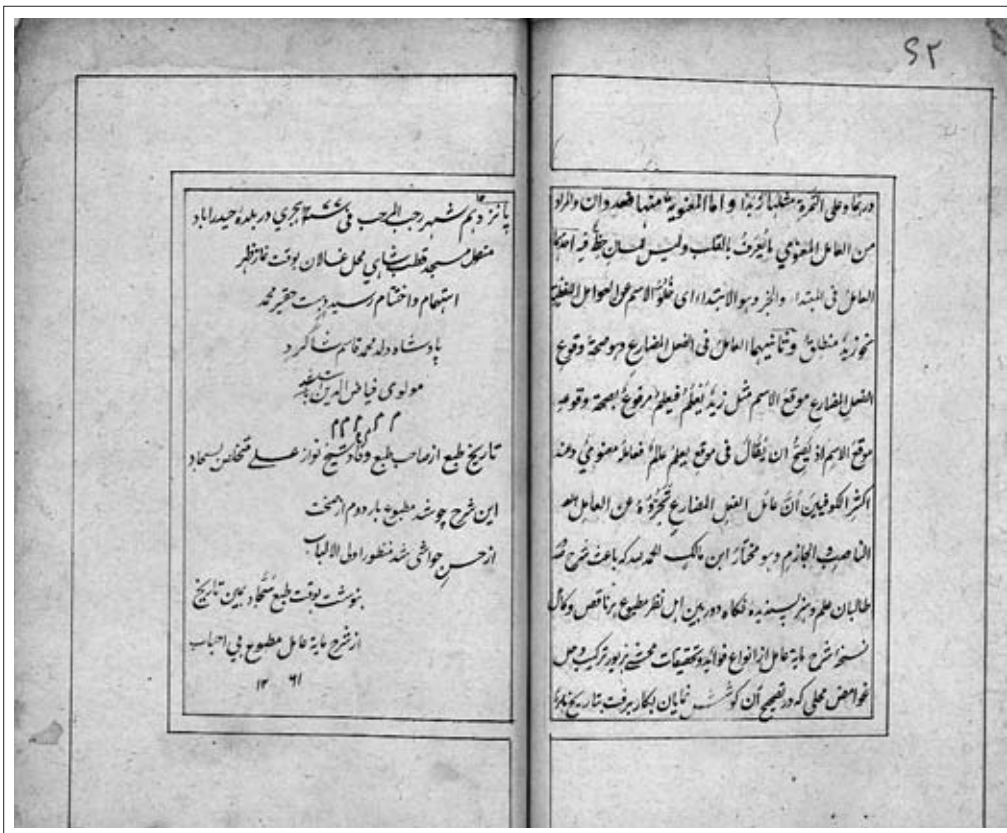 ۶۲
وعلی التمرة مثلها زبدا واما المعنویة فمنها عددان والمراد
من العامل المعنوي ما یُعرَفُ بالقلب ولیس للسان حظٌّ فیه احدهما
العامل فی المبتداء والخبر وهو الابتداء ای خُلُوّ الاسم عن العوامل اللفظیة
نحو زیدٌ منطلقٌ وثانیهما العامل فی الفعل المضارع وهو صحة وقوع
الفعل المضارع موقعَ الاسم مثل زیدٌ یَعْلَمُ فیعلم مرفوعٌ لصحة وقوعه
موقعَ الاسم اذ یَصِحُّ ان یُقَالَ فی موقع یعلم عالمٌ فعامله معنویٌ وعند
اکثر الکوفیین اَنَّ عامل الفعل المضارع تَجَرُّدُهٗ عن العامل
الناصب والجازم وهو مختارُ ابن مالکٍ الحمد لله که باعث شرح
طالبان علم وهنر پسندیده نگاه دوربین اهل نظر مطبوع هر ناقص وکامل
نسخه شرح مایة عامل از انواع فوائد وتحقیقات محشے بزیور ترکیب وحل
غوامض محلی که در تصحیح آن کوشش نمایان بکار رفت بتاریخ
پانزدهم شهر رجب المرجب فی ۱۲۷۷ هجری در بلدهٔ حیدراباد
متصل مسجد قطب شاهی محل بوقت نماز ظهر
واختتام رسید بدست حقیر محمد
پادشاه ولد محمد قاسم شاگرد
مولوی فیاض الدین
تاریخ طبع از صاحب طبع وقاد شیخ نواز علے متخلص بسجاد
این شرح چو شد مطبوع بار دوم از صحت
از حسن حواشی شد منظور اولی الالباب
بنوشت بوقت طبع سجّاد همین تاریخ
از شرح مایة عامل مطبوع فی احباب
۱۲ ۶۱